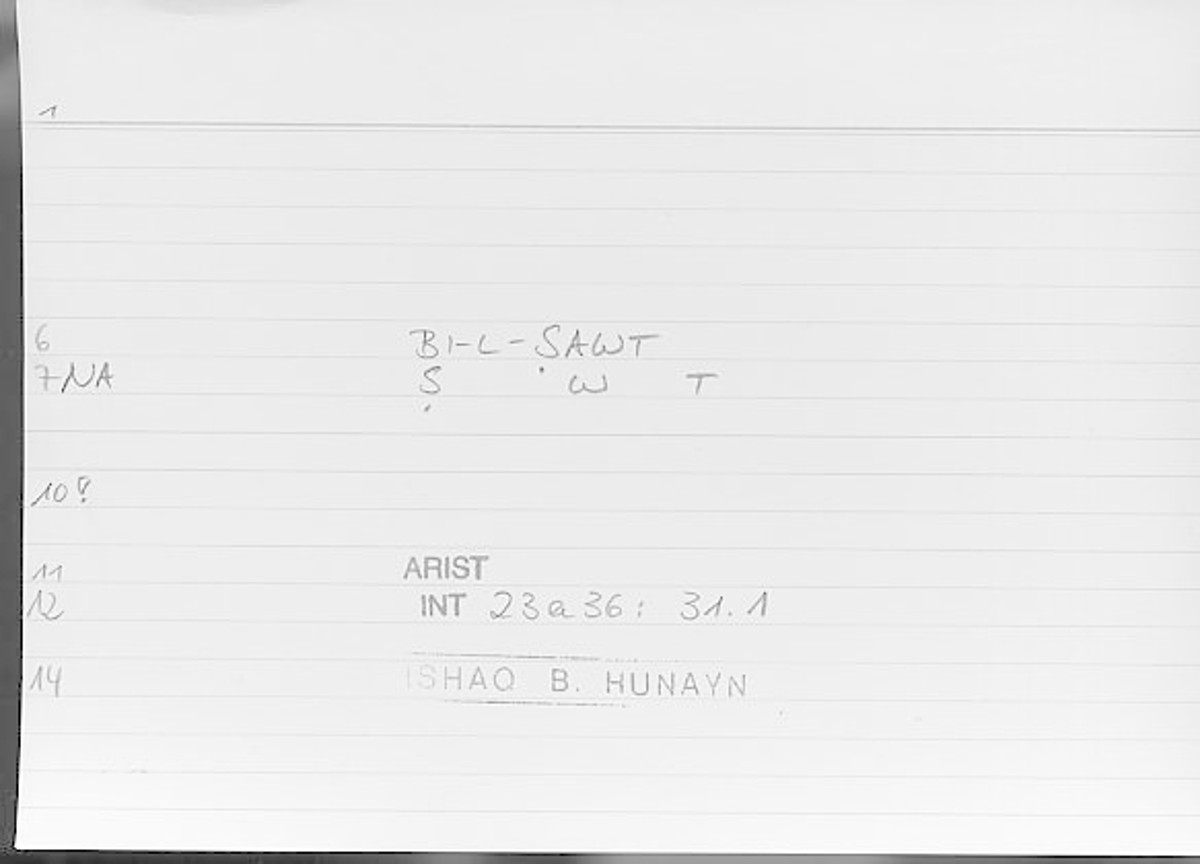 1
6 BI-L-ṢAWT
7 NA Ṣ W T
10?
11 ARIST
12 INT 23a36: 31.1
14 ISHAQ B. HUNAYN